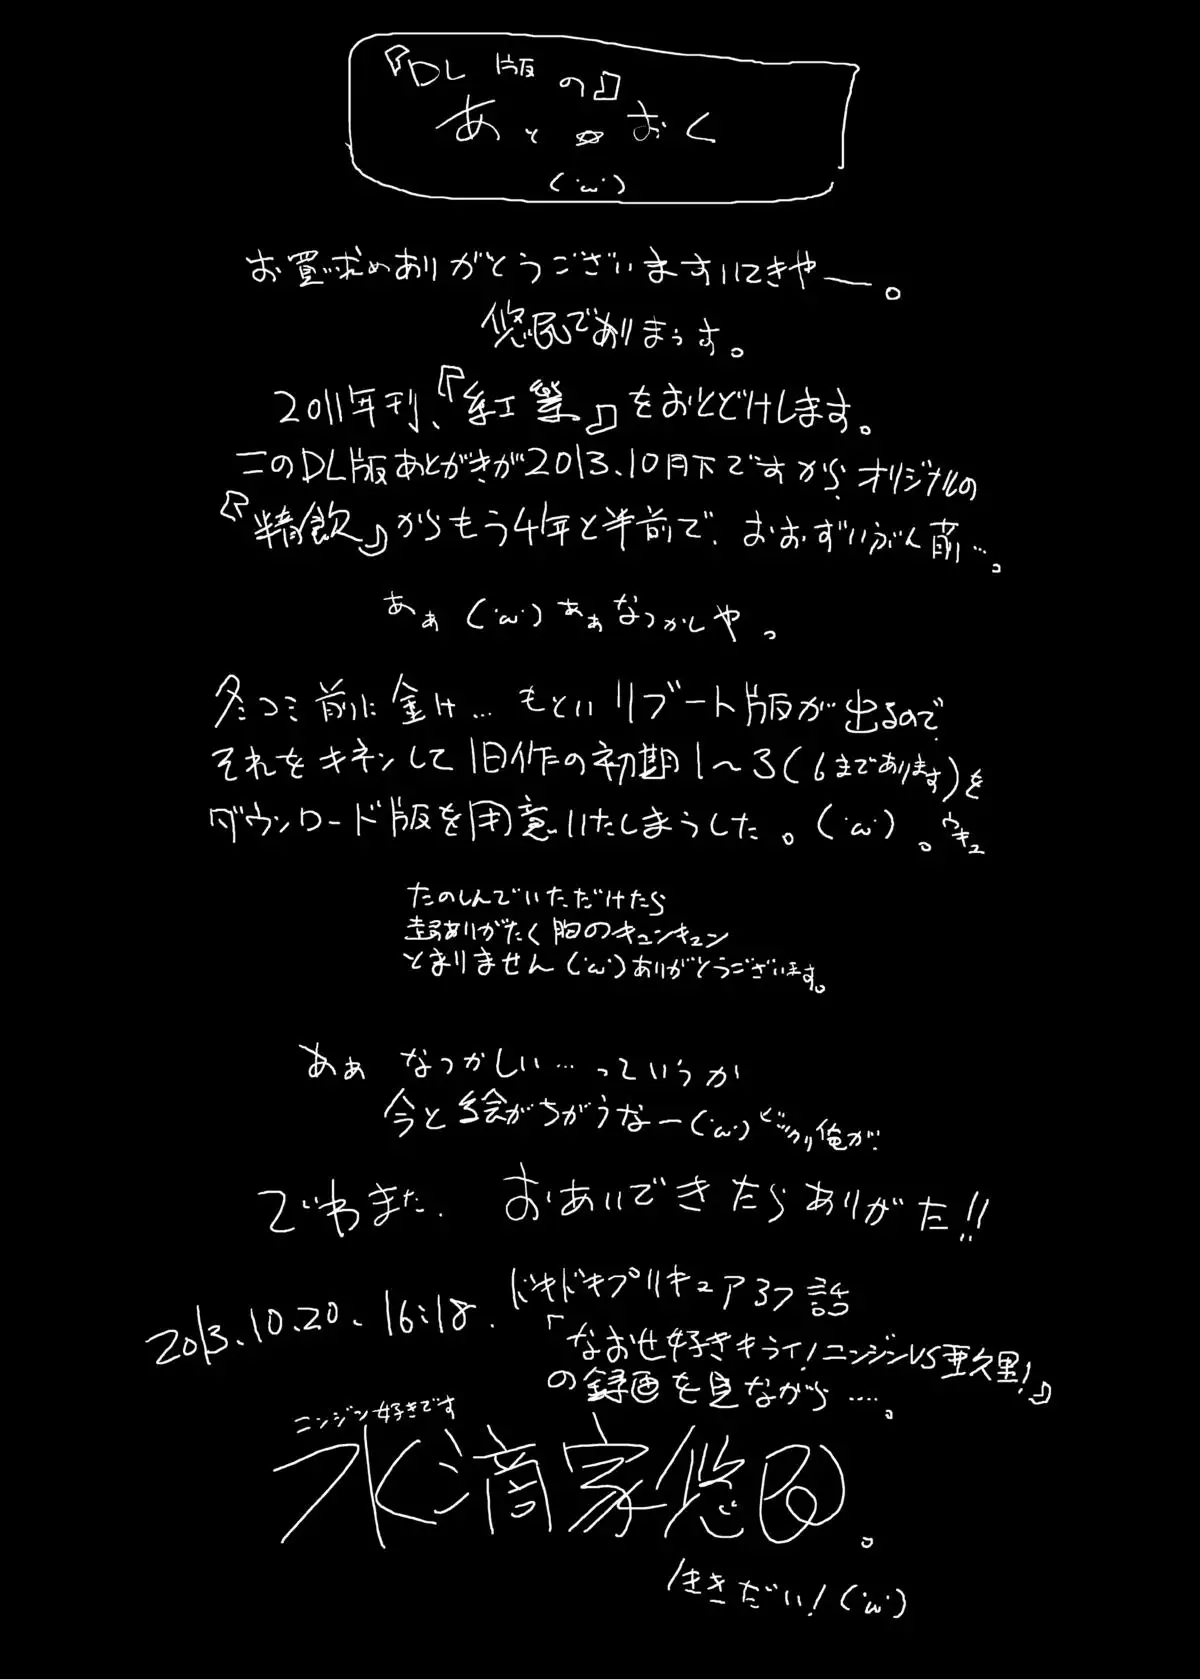 『DL版の』
あと おく
(･ω･)
お買い求めありがとうございますいてきやー。
悠民でありまっす。
2011年刊、『紅業』をおとどけします。
このDL版あとがきが2013.10月下ですから、オリジナルの
『精飲』からもう4年と半前で、おおずいぶん前…。
あぁ(･ω･)あぁなつかしや。
冬コミ前に金け…もといリブート版が出るので
それをキネンして旧作の初期1~3(6まであります)を
ダウンロード版を用意いたしまうした。(･ω･)。ウキュ
たのしんでいただけたら
超ありがたく胸のキュンキュン
とまりません(･ω･)ありがとうございます。
あぁ なつかしい…っていうか
今と絵がちがうなー(･ω･)ビックリ俺が
でわまた、おあいできたらありがた!!
2013.10.20、16:18.
ドキドキプリキュア37話
「なおせ好きキライ!ニンジンVS亜久里!」
の録画を見ながら……。
ニンジン好きです
水滴家悠
生きだい!(･ω･)